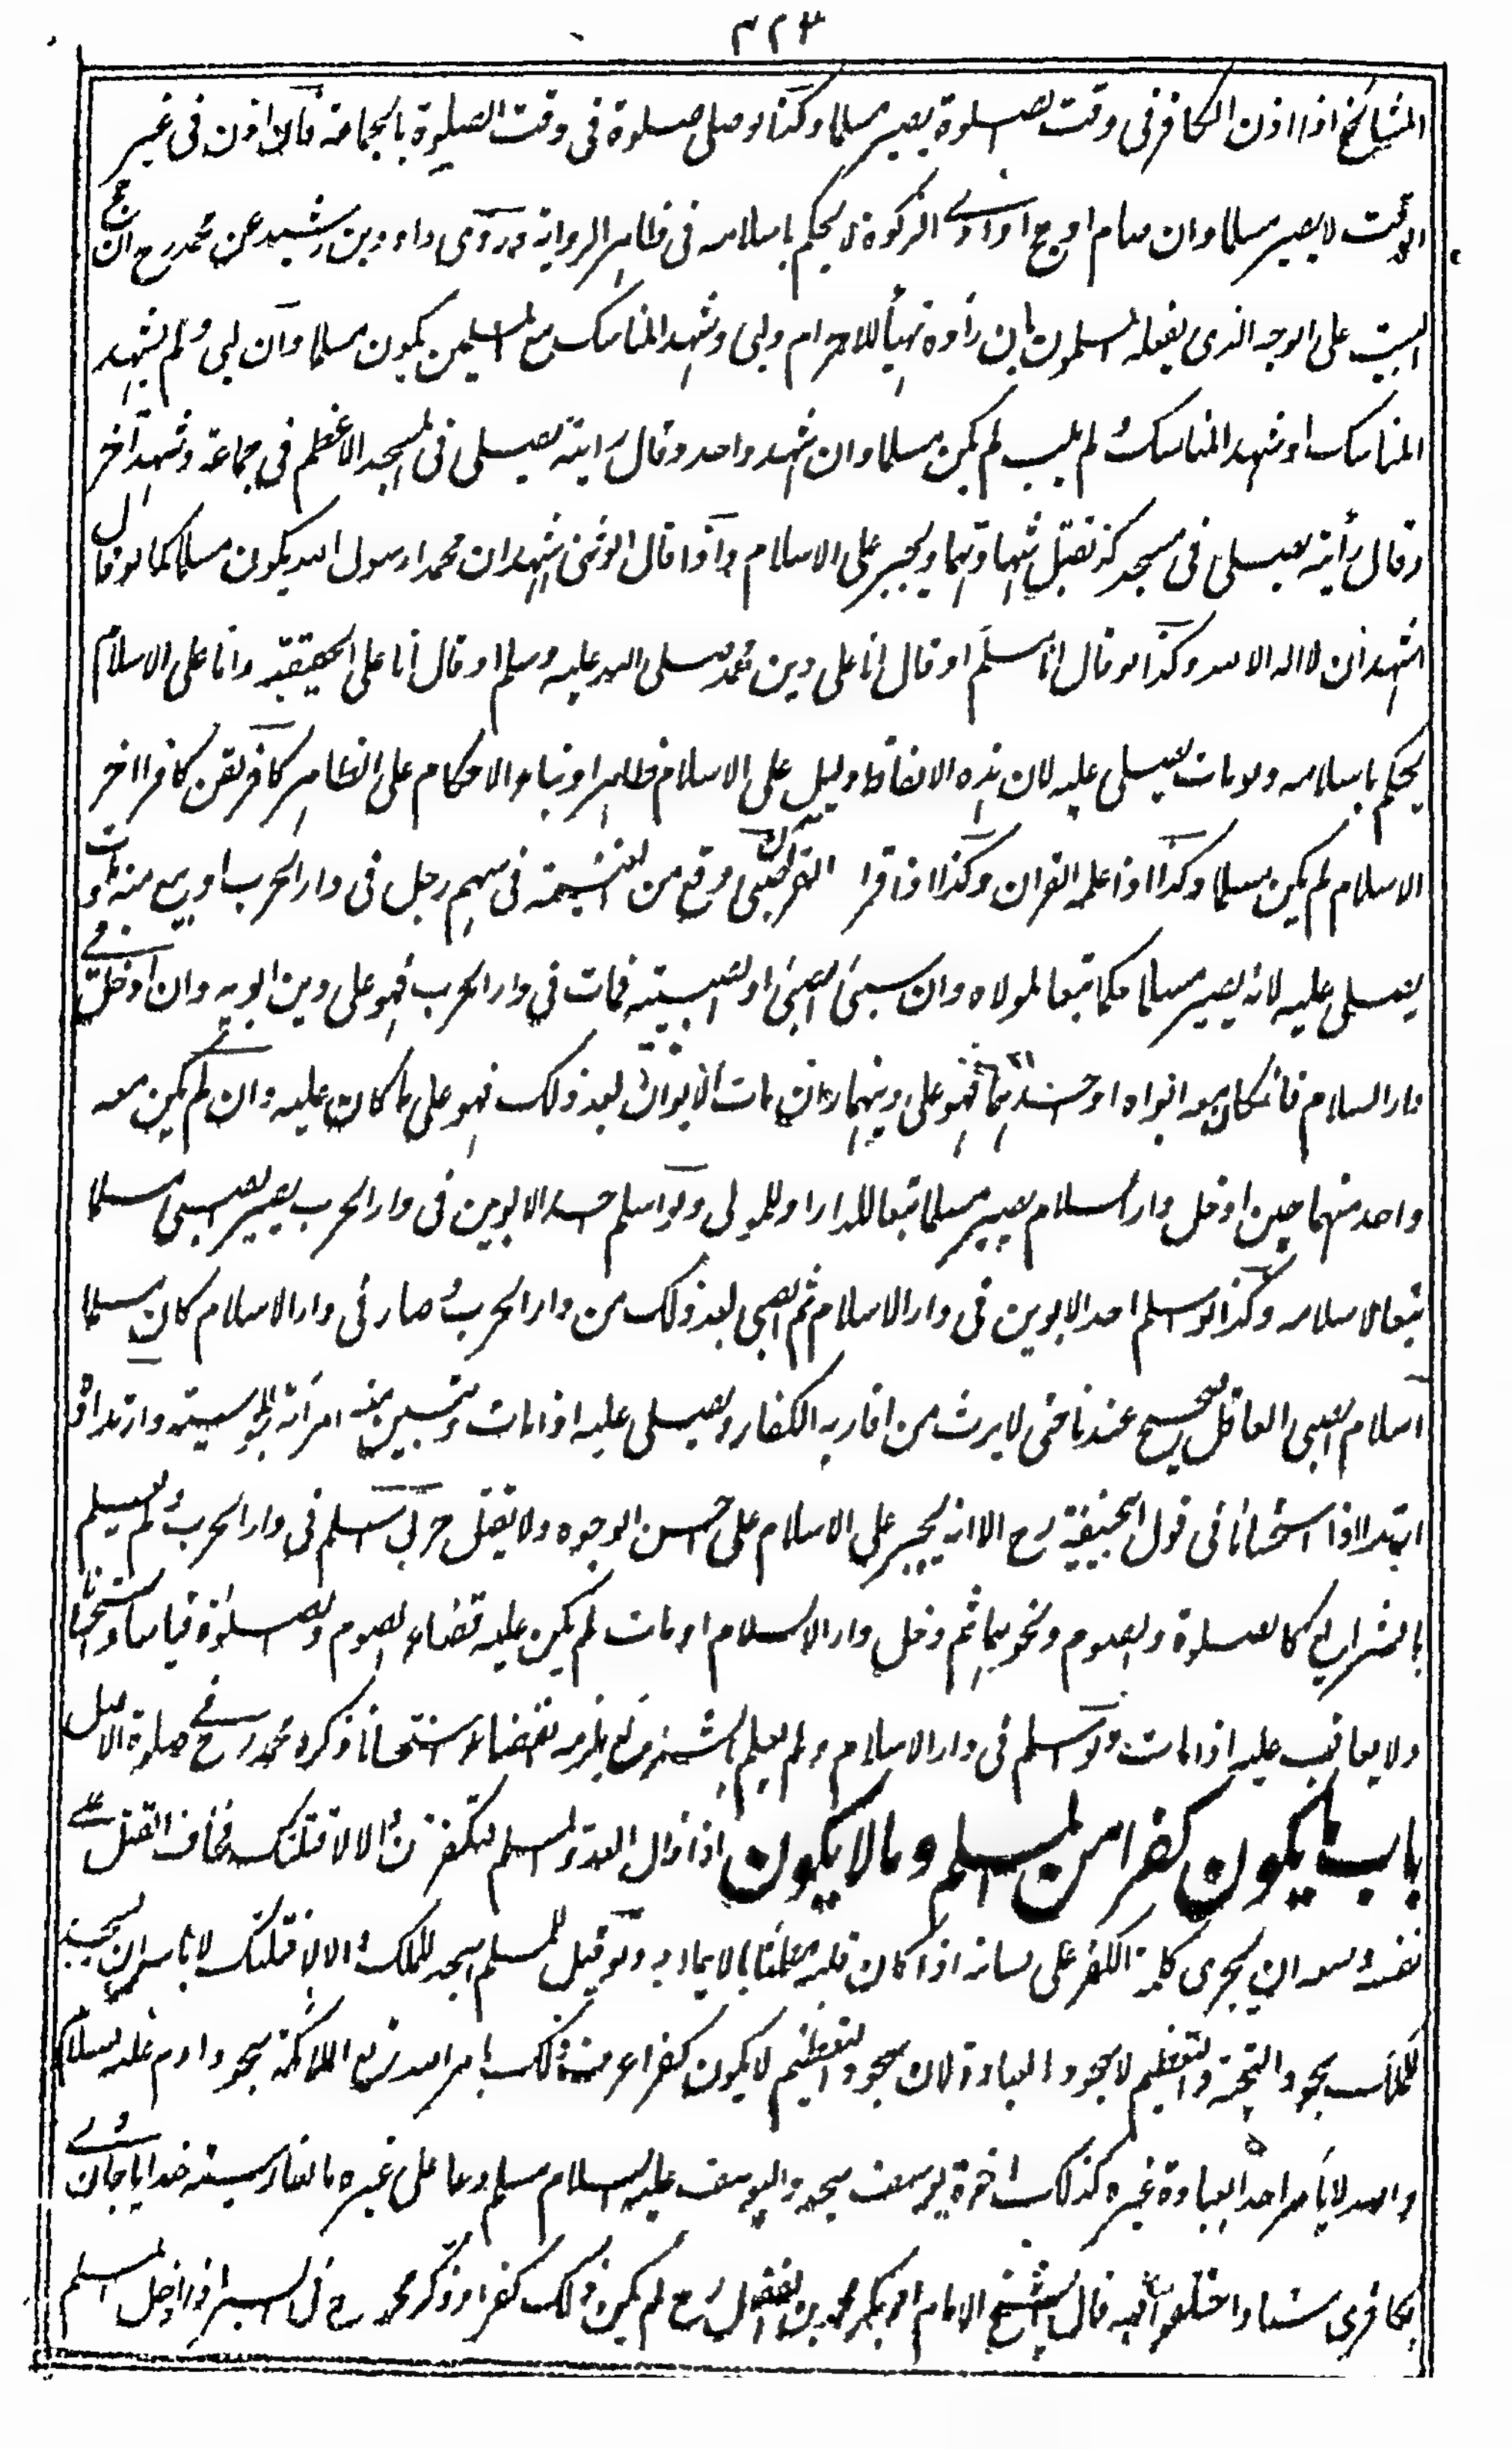 ٣٢٣
المشائخ اذا اذن الكافر فى وقت الصلوة يصير مسلما وكذا لو صلى صلوة فى وقت الصلوة بالجماعة فان اذن فى غير
الوقت لا يصير مسلما وان صام او حج او ادى الزكوة لا يحكم باسلامه فى ظاهر الرواية وروى داود بن رشيد عن محمد رح ان حج
البيت على الوجه الذى يفعله المسلمون بان رأوه تهيأ للاحرام ولبى وشهد المناسك مع المسلمين يكون مسلما وان لبى ولم يشهد
المناسك او شهد المناسك ولم يلب لم يكن مسلما وان شهد واحد وقال رايته يصلى فى المسجد الاعظم فى جماعة وشهد آخر
وقال رأيته يصلى فى مسجد كذ تقبل شهادتهما ويجبر على الاسلام واذا قال الوثنى اشهد ان محمدا رسول الله يكون مسلما كما لو قال
اشهد ان لا اله الا الله وكذا لو قال انا مسلم او قال انا على دين محمد صلى الله عليه وسلم او قال انا على الحنيفية وانا على الاسلام
يحكم باسلامه ولو مات يصلى عليه لان هذه الالفاظ دليل على الاسلام ظاهرا وبناء الاحكام على الظاهر كافر لقن كافرا اخر
الاسلام لم يكن مسلما وكذا اذا علمه القران وكذا اذا قرا القران صبى وقع من الغنيمة فى سهم رجل فى دار الحرب او بيع منه فمات
يصلى عليه لانه يصير مسلما حكما تبعا لمولاه وان سبى الصبى او الصبية فمات فى دار الحرب فهو على دين ابويه وان ادخل فى
دار السلام فان كان معه ابواه او احدهما فهو على دينهما وان مات الابوان بعد ذلك فهو على ما كان عليه وان لم يكن معه
واحد منهما حين ادخل دار السلام يصير مسلما تبعا للدار او للمولى ولو اسلم احد الابوين فى دار الحرب يصير الصبى مسلما
تبعا لاسلامه وكذا لو اسلم احد الابوين فى دار الاسلام ثم الصبى بعد ذلك من دار الحرب وصار فى دار الاسلام كان مسلما
اسلام الصبى العاقل صحيح عندنا حتى لا يرث من اقاربه الكفار ويصلى عليه اذا مات وتبين منه امرأته المجوسية وارتداده
ارتداد استحسانا فى قول ابيحنيفة رح الا انه يجبر على الاسلام على احسن الوجوه ولا يقتل حربى اسلم فى دار الحرب ولم يعلم
بالشرايع كالصلوة والصوم ونحوهما ثم دخل دار الاسلام او مات لم يكن عليه قضاء الصوم والصلوة قياسا واستحسانا
ولا يعاقب عليه اذا مات ولو اسلم فى دار الاسلام ولم يعلم بالشرائع يلزمه القضاء استحسانا ذكره محمد رح فى صلوة الاصل
باب ما يكون كفرا من المسلم وما لا يكون اذا قال العدو لمسلم لتكفرن والا لاقتلنك فخاف القتل على
نفسه وسعه ان يجرى كلمة الكفر على لسانه اذا كان قلبه مطمئنا بالايمان ولو قيل لمسلم اسجد للملك والا لاقتلنك لا باس بان يسجد
للملك سجود التحية والتعظيم لا سجود العبادة لان سجود التعظيم لا يكون كفرا عرف ذلك بامر الله تع الملائكة بسجود ادم عليه السلام
والله لا يأمر احدا بعبادة غيره كذلك اخوة يوسف سجدوا ليوسف عليه السلام مسلم دعا على غيره بالفارسية خدايا جان وى
بكافرى ستا واختلفوا فيه قال الشيخ الامام ابو بكر محمد بن الفضل رح لم يكن ذلك كفرا وذكر محمد رح فى السير اذا دخل المسلم